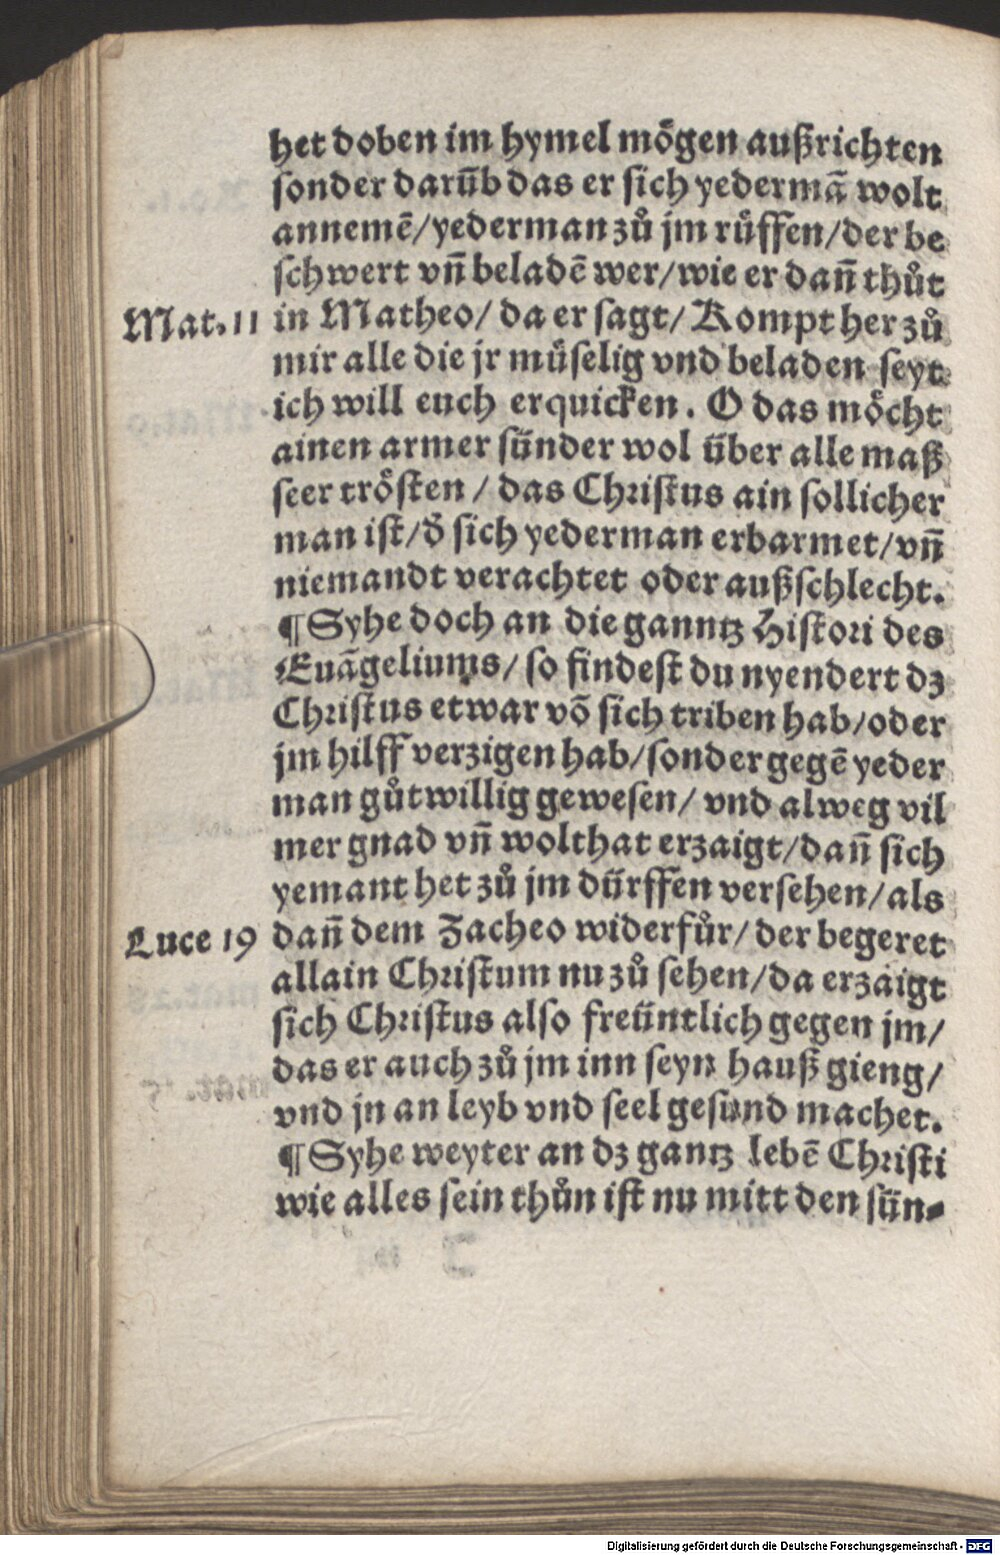 het doben im hymel mögen außrichten
sonder darũb das er sich yedermã wolt
annemẽ/yederman zů jm růffen/der be
schwert vñ beladẽ wer/wie er dañ thůt
Mat. 11 in Matheo/ da er sagt/ Kompt her zů
mir alle die jr müselig vnd beladen seyt
ich will euch erquicken. O das möcht
ainen armer sünder wol über alle maß
seer trösten / das Christus ain sollicher
man ist/ď sich yederman erbarmet/vñ
niemandt verachtet oder außschlecht.
¶ Syhe doch an die ganntz Histori des
Euãgeliums/ so findest du nyendert dz
Christus etwar võ sich triben hab/oder
jm hilff verzigen hab/sonder gegẽ yeder
man gůtwillig gewesen/ vnd alweg vil
mer gnad vñ wolthat erzaigt/dañ sich
yemant het zů jm dürffen versehen/als
Luce 19 dañ dem Zacheo widerfůr/ der begeret
allain Christum nu zů sehen/da erzaigt
sich Christus also freüntlich gegen jm/
das er auch zů jm inn seyn hauß gieng/
vnd jn an leyb vnd seel gesund machet.
¶ Syhe weyter an dz gantz lebẽ Christi
wie alles sein thůn ist nu mitt den sün-
Digitalisierung gefördert durch die Deutsche Forschungsgemeinschaft - DFG